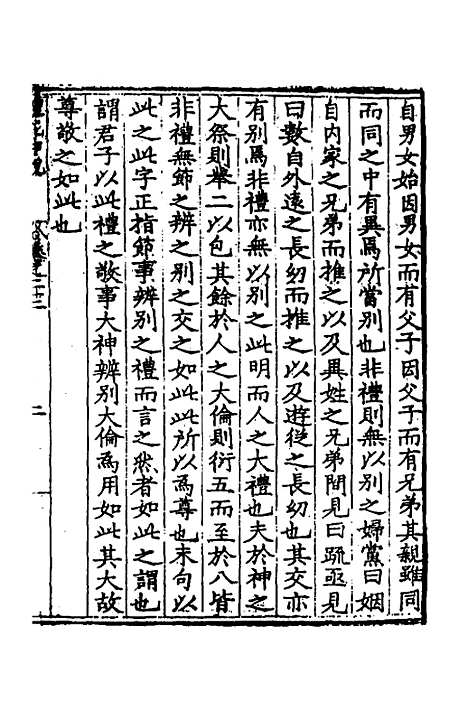 自男女始因男女而有父子因父子而有兄弟其親雖同
而同之中有異焉所當別也非禮則無以別之婦黨曰姻
自内家之兄弟而推之以及異姓之兄弟間見曰疏亟見
曰數自外遠之長幼而推之以及遊從之長幼也其交亦
有別焉非禮亦無以別之此明而人之大禮也夫於神之
大祭則舉二以包其餘於人之大倫則衍五而至於八皆
非禮無節之辨之別之交之如此此所以為尊也末句以
此之此字正指節事辨別之禮而言之然者如此之謂也
謂君子以此禮之敬事大神辨別大倫為用如此其大故
尊敬之如此也